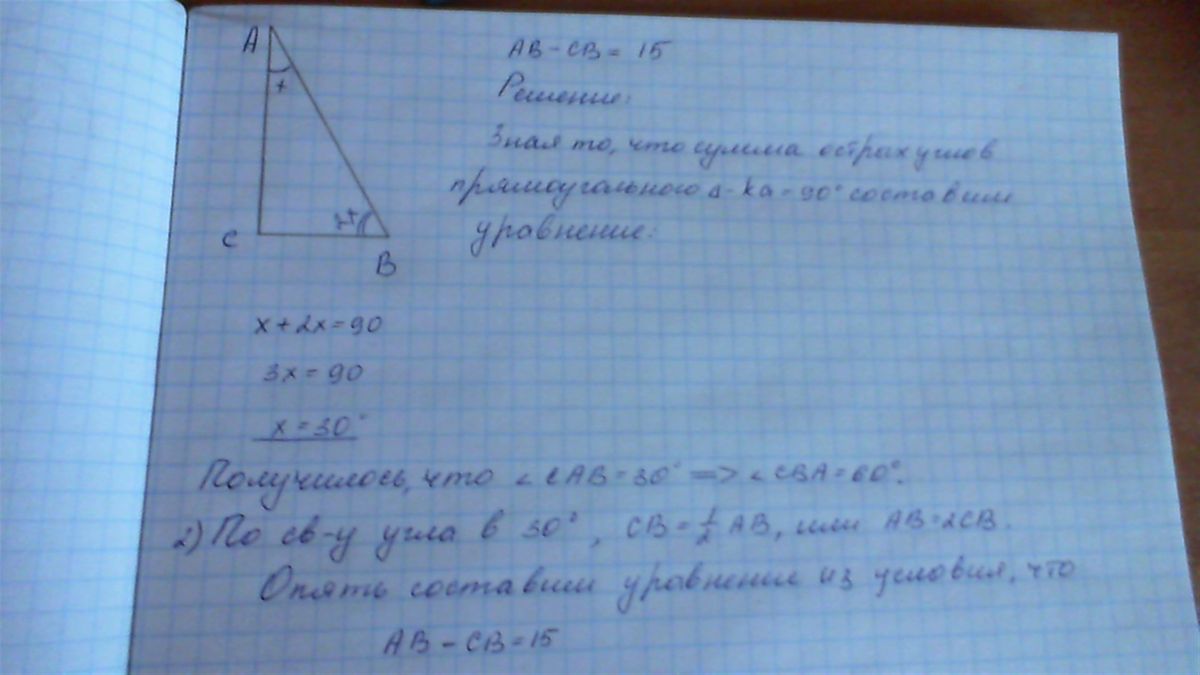 A
x
C
2x
B
AB - CB = 15
Решение:
Зная то, что сумма острых углов
прямоугольного Δ-ка = 90° составим
уравнение:
x + 2x = 90
3x = 90
x = 30°
Получилось, что ∠CAB = 30° => ∠CBA = 60°.
2) По св-у угла в 30°, CB = 1/2 AB, или AB = 2CB.
Опять составим уравнение из условия, что
AB - CB = 15